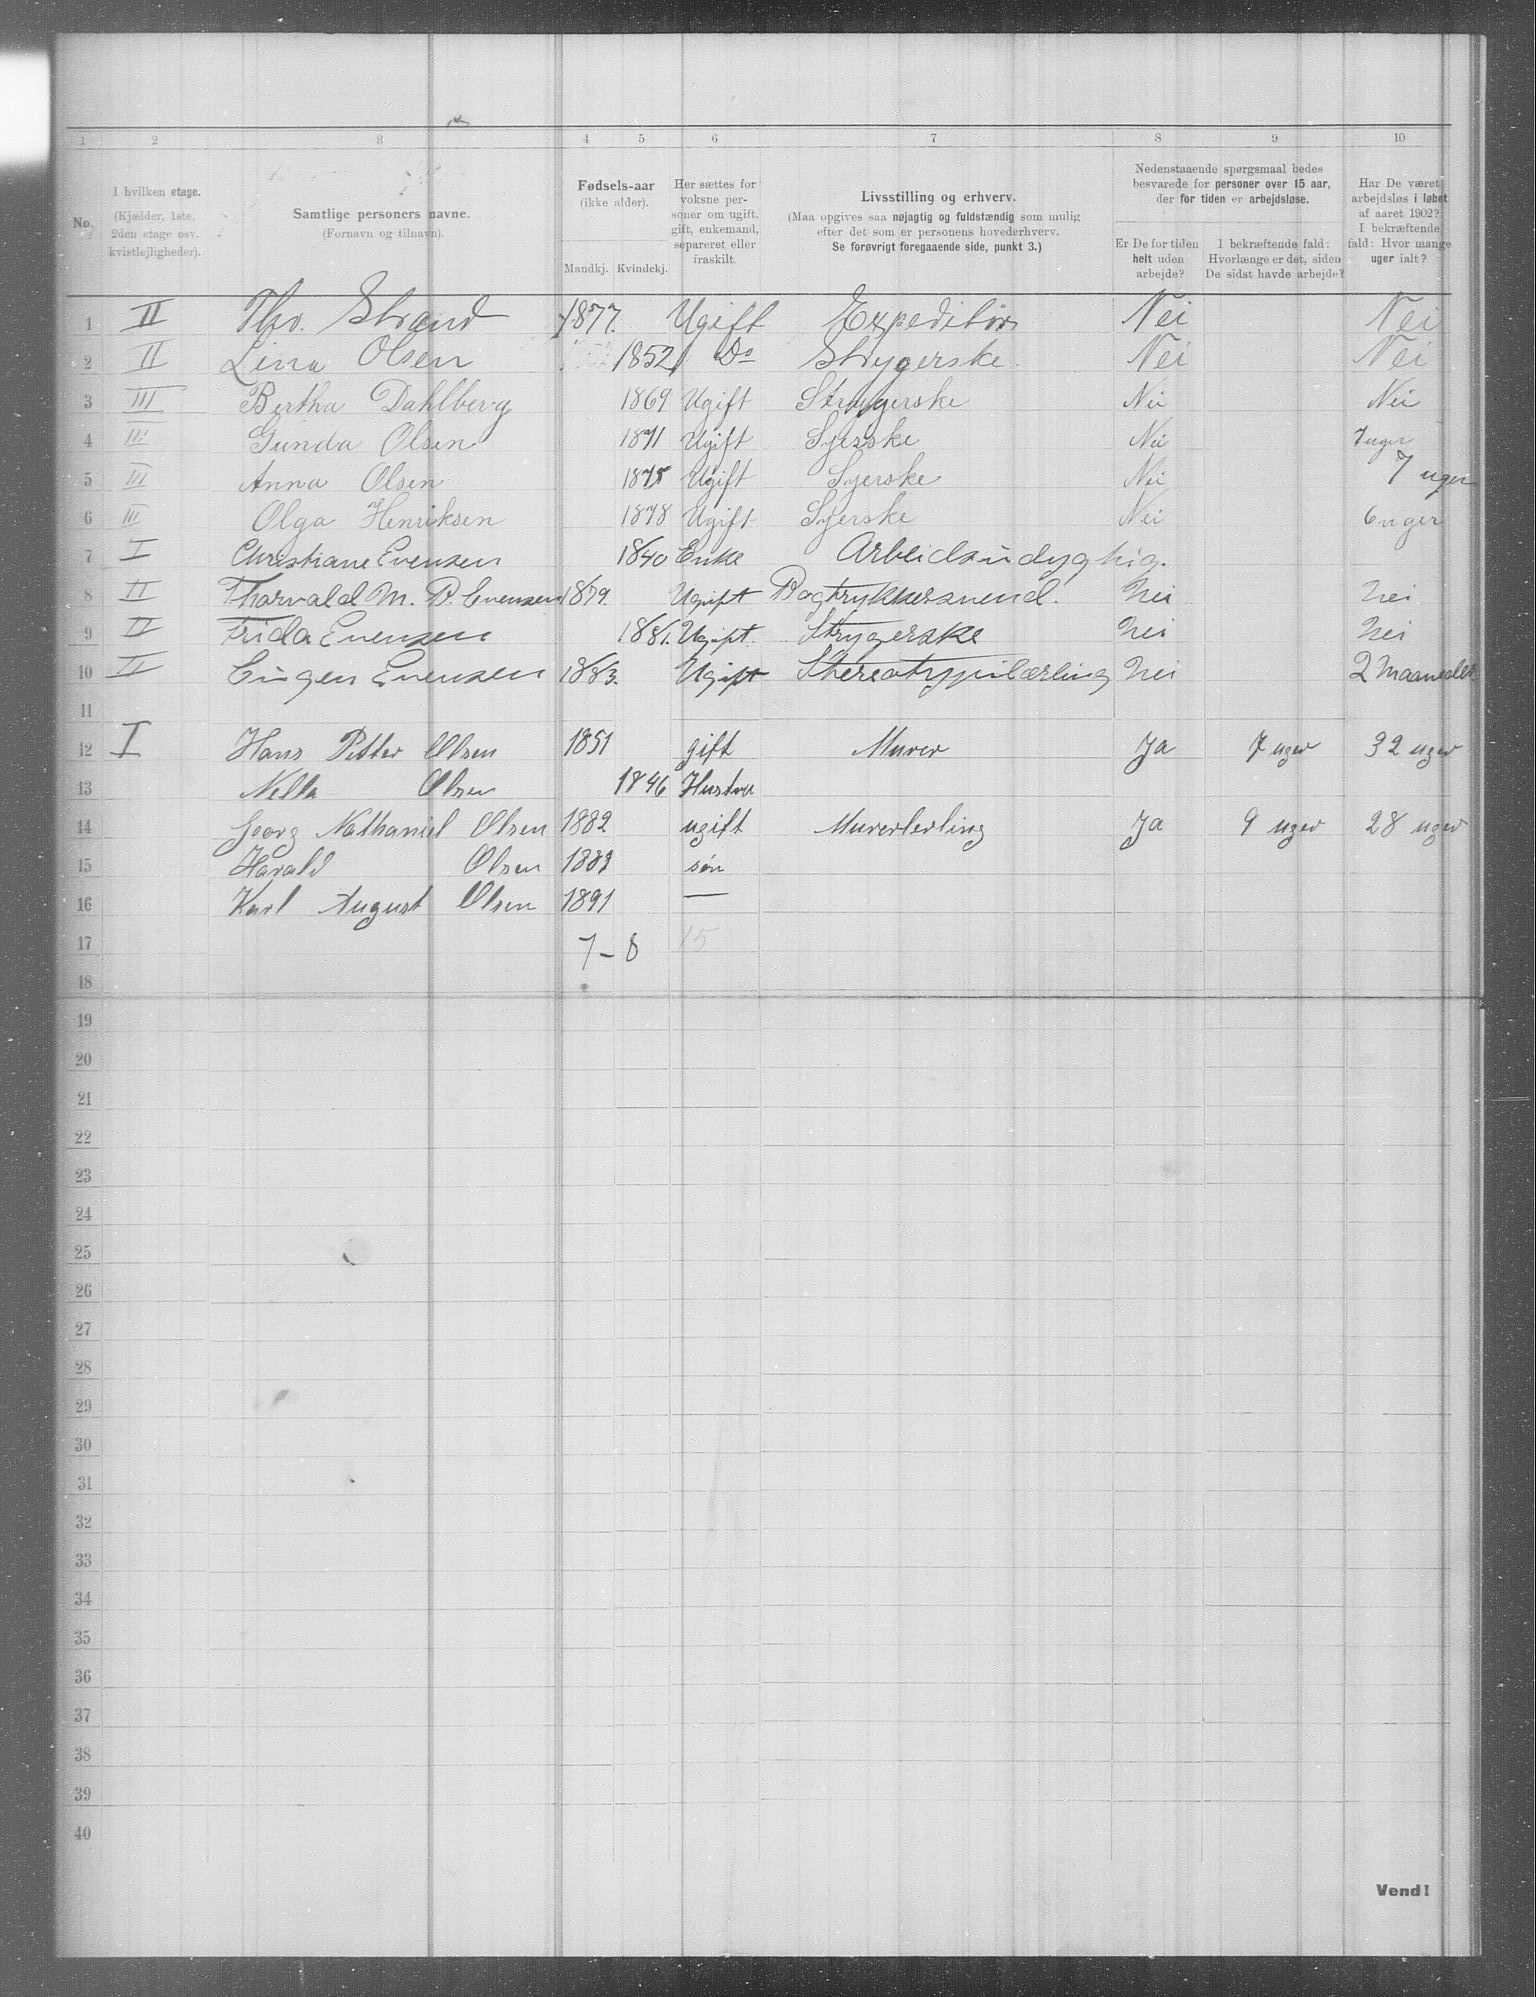 1 2 3 4 5 6 7 8 9 10
No.
I hvilken etage.
(Kjælder, 1ste,
2den etage osv.
kvistlejligheder).
Samtlige personers navne.
(Fornavn og tilnavn).
Fødsels-aar
(ikke alder).
Mandkj. Kvindekj.
Her sættes for
voksne per-
soner om ugift,
gift, enkemand,
separeret eller
fraskilt.
Livsstilling og erhverv.
(Maa opgives saa nøjagtig og fuldstændig som mulig
efter det som er personens hovederhverv.
Se forøvrigt foregaaende side, punkt 3.)
Nedenstaaende spørgsmaal bedes
besvarede for personer over 15 aar,
der for tiden er arbejdsløse.
Er De for tiden
helt uden
arbejde?
I bekræftende fald:
Hvorlænge er det, siden
De sidst havde arbejde?
Har De været
arbejdsløs i løbet
af aaret 1902?
I bekræftende
fald: Hvor mange
uger ialt?
1 II Thv. Strand 1877. Ugift Expeditør Nei Nei
2 II Lina Olsen 1852 Do Strygerske Nei Nei
3 III Bertha Dahlberg 1869 Ugift Strygerske Nei Nei
4 III Gunda Olsen 1871 Ugift Syerske Nei 7 uger
5 III Anna Olsen 1875 Ugift Syerske Nei 7 uger
6 III Olga Henriksen 1878 Ugift Syerske Nei 6 uger
7 I Christiane Evensen 1840 Enke Arbeidsudygtig.
8 II Thorvald M. B. Evensen 1879. Ugift Bogtrykkersvend. Nei Nei
9 II Frida Evensen 1881. Ugift. Strygerske Nei Nei
10 II Eugen Evensen 1883. Ugift Stereotypilærling Nei 2 Maaneder
11
12 I Hans Petter Olsen 1851 gift Murer Ja 7 uger 32 uger
13 Nella Olsen 1846 Hustru
14 Georg Nathaniel Olsen 1882 ugift Murerlerling Ja 9 uger 28 uger
15 Harald Olsen 1889 søn
16 Karl August Olsen 1891 —
17 7-8 15
18
19
20
21
22
23
24
25
26
27
28
29
30
31
32
33
34
35
36
37
38
39
40
Vend!